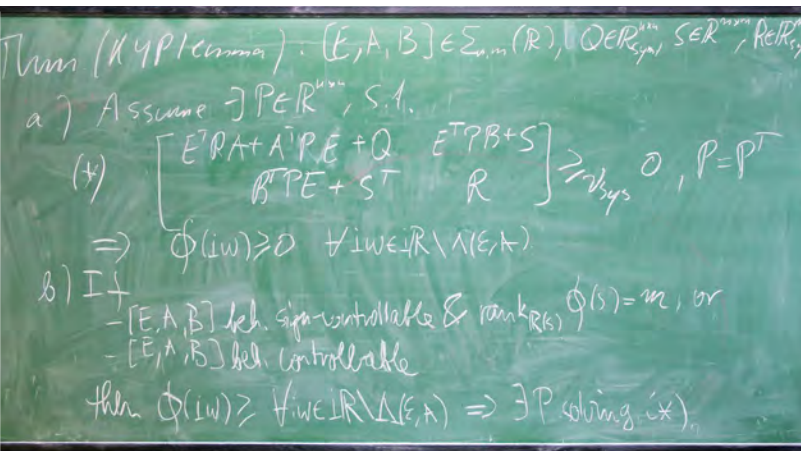 Thm (KYP lemma): [E,A,B] ∈ Σ_{n,m}(ℝ), Q∈ℝ^{n×n}_{sym}, S∈ℝ^{n×m}, R∈ℝ_{sy
a) Assume ∃P∈ℝ^{n×n}, s.t.
(*) [E^TPA+A^TPE+Q E^TPB+S
B^TPE+S^T R] ≥_{V_{sys}} 0, P=P^T
⇒ Φ(iω)≥0 ∀iω∈iℝ\Λ(E,A)
b) If
-[E,A,B] beh. sign-controllable & rank_{ℝ(s)} Φ(s)=m, or
-[E,A,B] beh. controllable
then Φ(iω)≥ ∀iω∈iℝ\Λ(E,A) ⇒ ∃P solving (*).